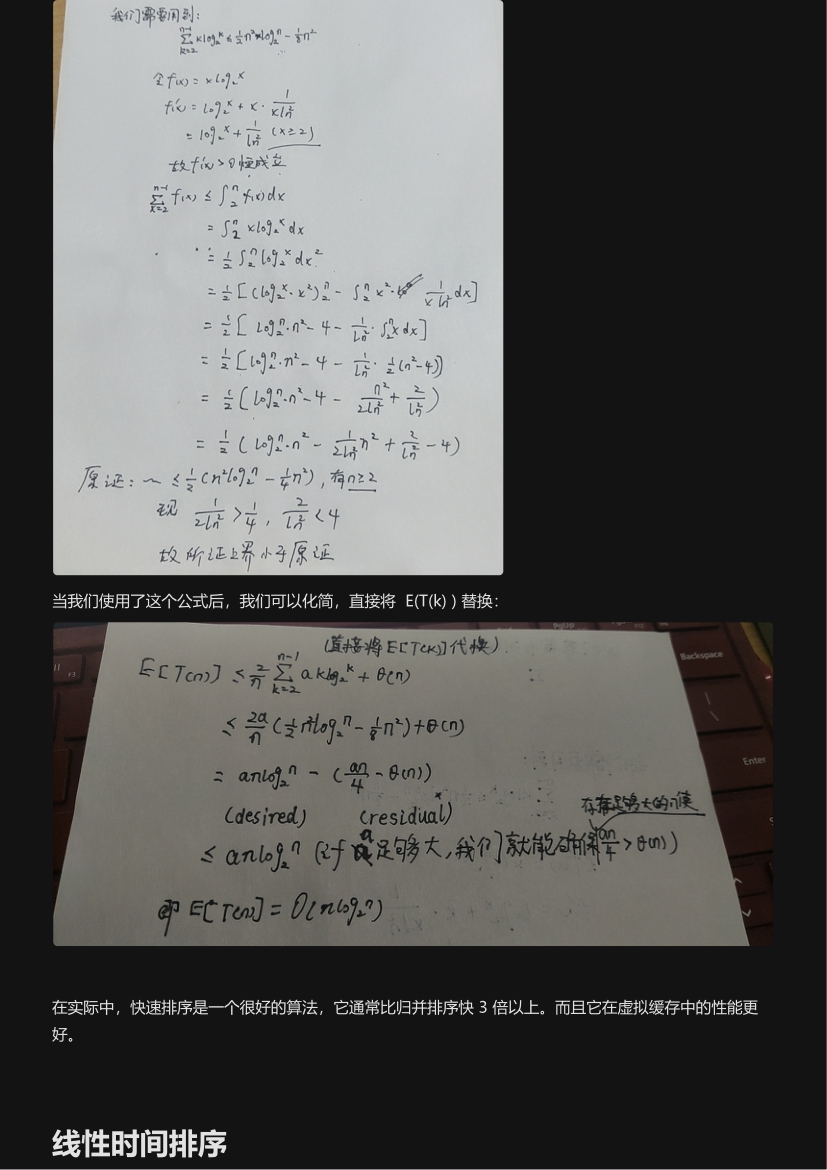 我们需要用到:
∑_{k=2}^{n-1} k log₂k ≤ ½n² log₂n - ⅛n²
令 f(x) = x log₂x
f'(x) = log₂x + x · 1/(x ln2)
= log₂x + 1/ln2 (x≥2)
故 f'(x) > 0 恒成立
∑_{k=2}^{n-1} f(x) ≤ ∫₂ⁿ f(x) dx
= ∫₂ⁿ x log₂x dx
= ½ ∫₂ⁿ log₂x dx²
= ½ [(log₂x · x²)₂ⁿ - ∫₂ⁿ x² · 1/(x ln2) dx]
= ½ [log₂n · n² - 4 - 1/ln2 · ∫₂ⁿ x dx]
= ½ [log₂n · n² - 4 - 1/ln2 · ½(n²-4)]
= ½ (log₂n · n² - 4 - n²/(2ln2) + 2/ln2)
= ½ (log₂n · n² - 1/(2ln2) n² + 2/ln2 - 4)
原证: ~ ≤ ½(n² log₂n - ¼n²), 有 n≥2
现 1/(2ln2) > ¼, 2/ln2 < 4
故所证上界小于原证
当我们使用了这个公式后，我们可以化简，直接将 E(T(k) ) 替换：
(直接将 E[T(k)] 代换)
Backspace
E[T(n)] ≤ 2/n ∑_{k=2}^{n-1} a k log₂k + θ(n)
≤ 2a/n (½n² log₂n - ⅛n²) + θ(n)
Enter
= an log₂n - (an/4 - θ(n))
存在足够大的n使
(desired) (residual)
≤ an log₂n (if a 足够大, 我们就能确保 an/4 > θ(n))
即 E[T(n)] = O(n log₂n)
在实际中，快速排序是一个很好的算法，它通常比归并排序快 3 倍以上。而且它在虚拟缓存中的性能更
好。
线性时间排序